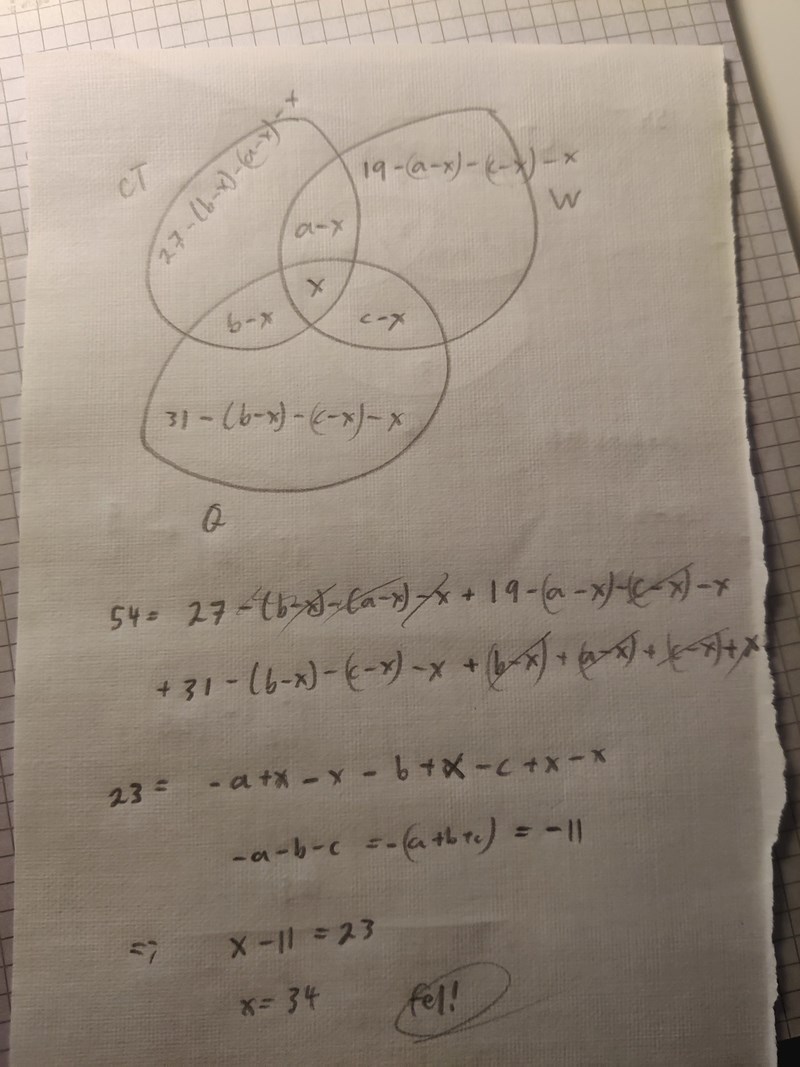 CT
27-(b-x)-(a-x)-x
19-(a-x)-(c-x)-x
W
a-x
x
b-x
c-x
31-(b-x)-(c-x)-x
Q
54= 27-(b-x)-(a-x)-x+19-(a-x)-(c-x)-x
+31-(b-x)-(c-x)-x+(b-x)+(a-x)+(c-x)+x
23= -a+x-x-b+x-c+x-x
-a-b-c =-(a+b+c) = -11
=> x-11=23
x=34 fel!